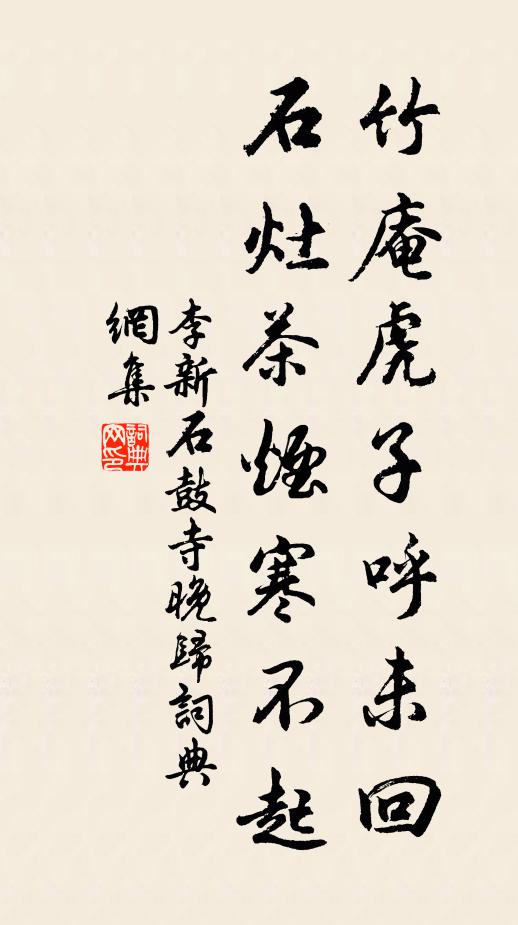 竹庵虎子呼未回
石灶茶煙寒不起
李新石鼓寺晚歸詞典
網集
詞典
网印